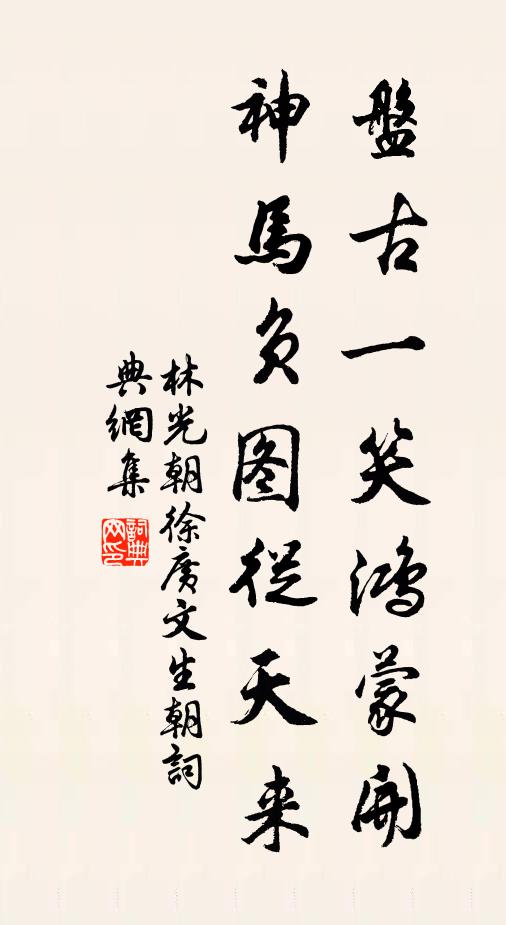 盤古一笑鴻蒙開
神馬負图從天来
林光朝徐廣文生朝詞
典網集
詞典网印